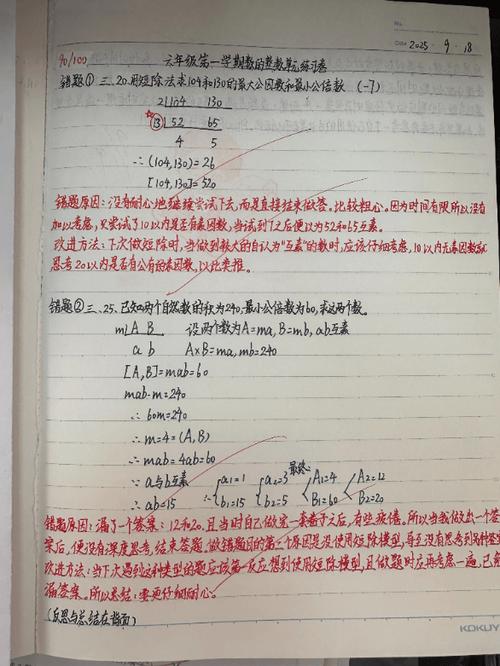 DATE 2025 . 9 . 18
90/100
六年级第一学期数的整数单元练习卷
错题① 三、20.用短除法求104和130的最大公因数和最小公倍数 (-7)
2|104 130
⑬|52 65
4 5
∴(104,130)=26
[104,130]=520
错题原因:没有耐心地继续尝试下去,而是直接结束做答。比较粗心。因为时间有限所以没有
加以考虑,只尝试了10以内是否有素因数,当试到7之后便以为52和65互素。
改进方法:下次做短除时,当做到较大的自认为"互素"的数时,应该仔细考虑,10以内无素因数就
思考20以内是否有公有的素因数,以此类推。
错题② 三、25.已知两个自然数的积为240,最小公倍数为60,求这两个数。
m|A B 设两个数为A=ma,B=mb,ab互素
a b A×B=ma,mb=240
[A,B]=mab=60
mab·m=240
∴60m=240
∴m=4=(A,B)
∴mab=4ab=60
∵a与b互素
最终:
∴ab=15 ∴{a₁=1 b₁=15 {a₂=3 b₂=5 {A₁=4 B₁=60 {A₂=12 B₂=20
错题原因:漏了一个答案:12和20。且当时自己做完一套卷子之后,有些疲倦。所以当我做出一个答
案后,便没有深度思考,结束答题。做错题目的第二个原因是没使用短除模型,导致没有思考到
改进方法:当下次遇到这种类型的题应该第一反应想到使用短除模型,且做题时应再考虑一遍,
漏答案。所以总结:要更仔细耐心。
(反思与总结在背面)
KOKUY